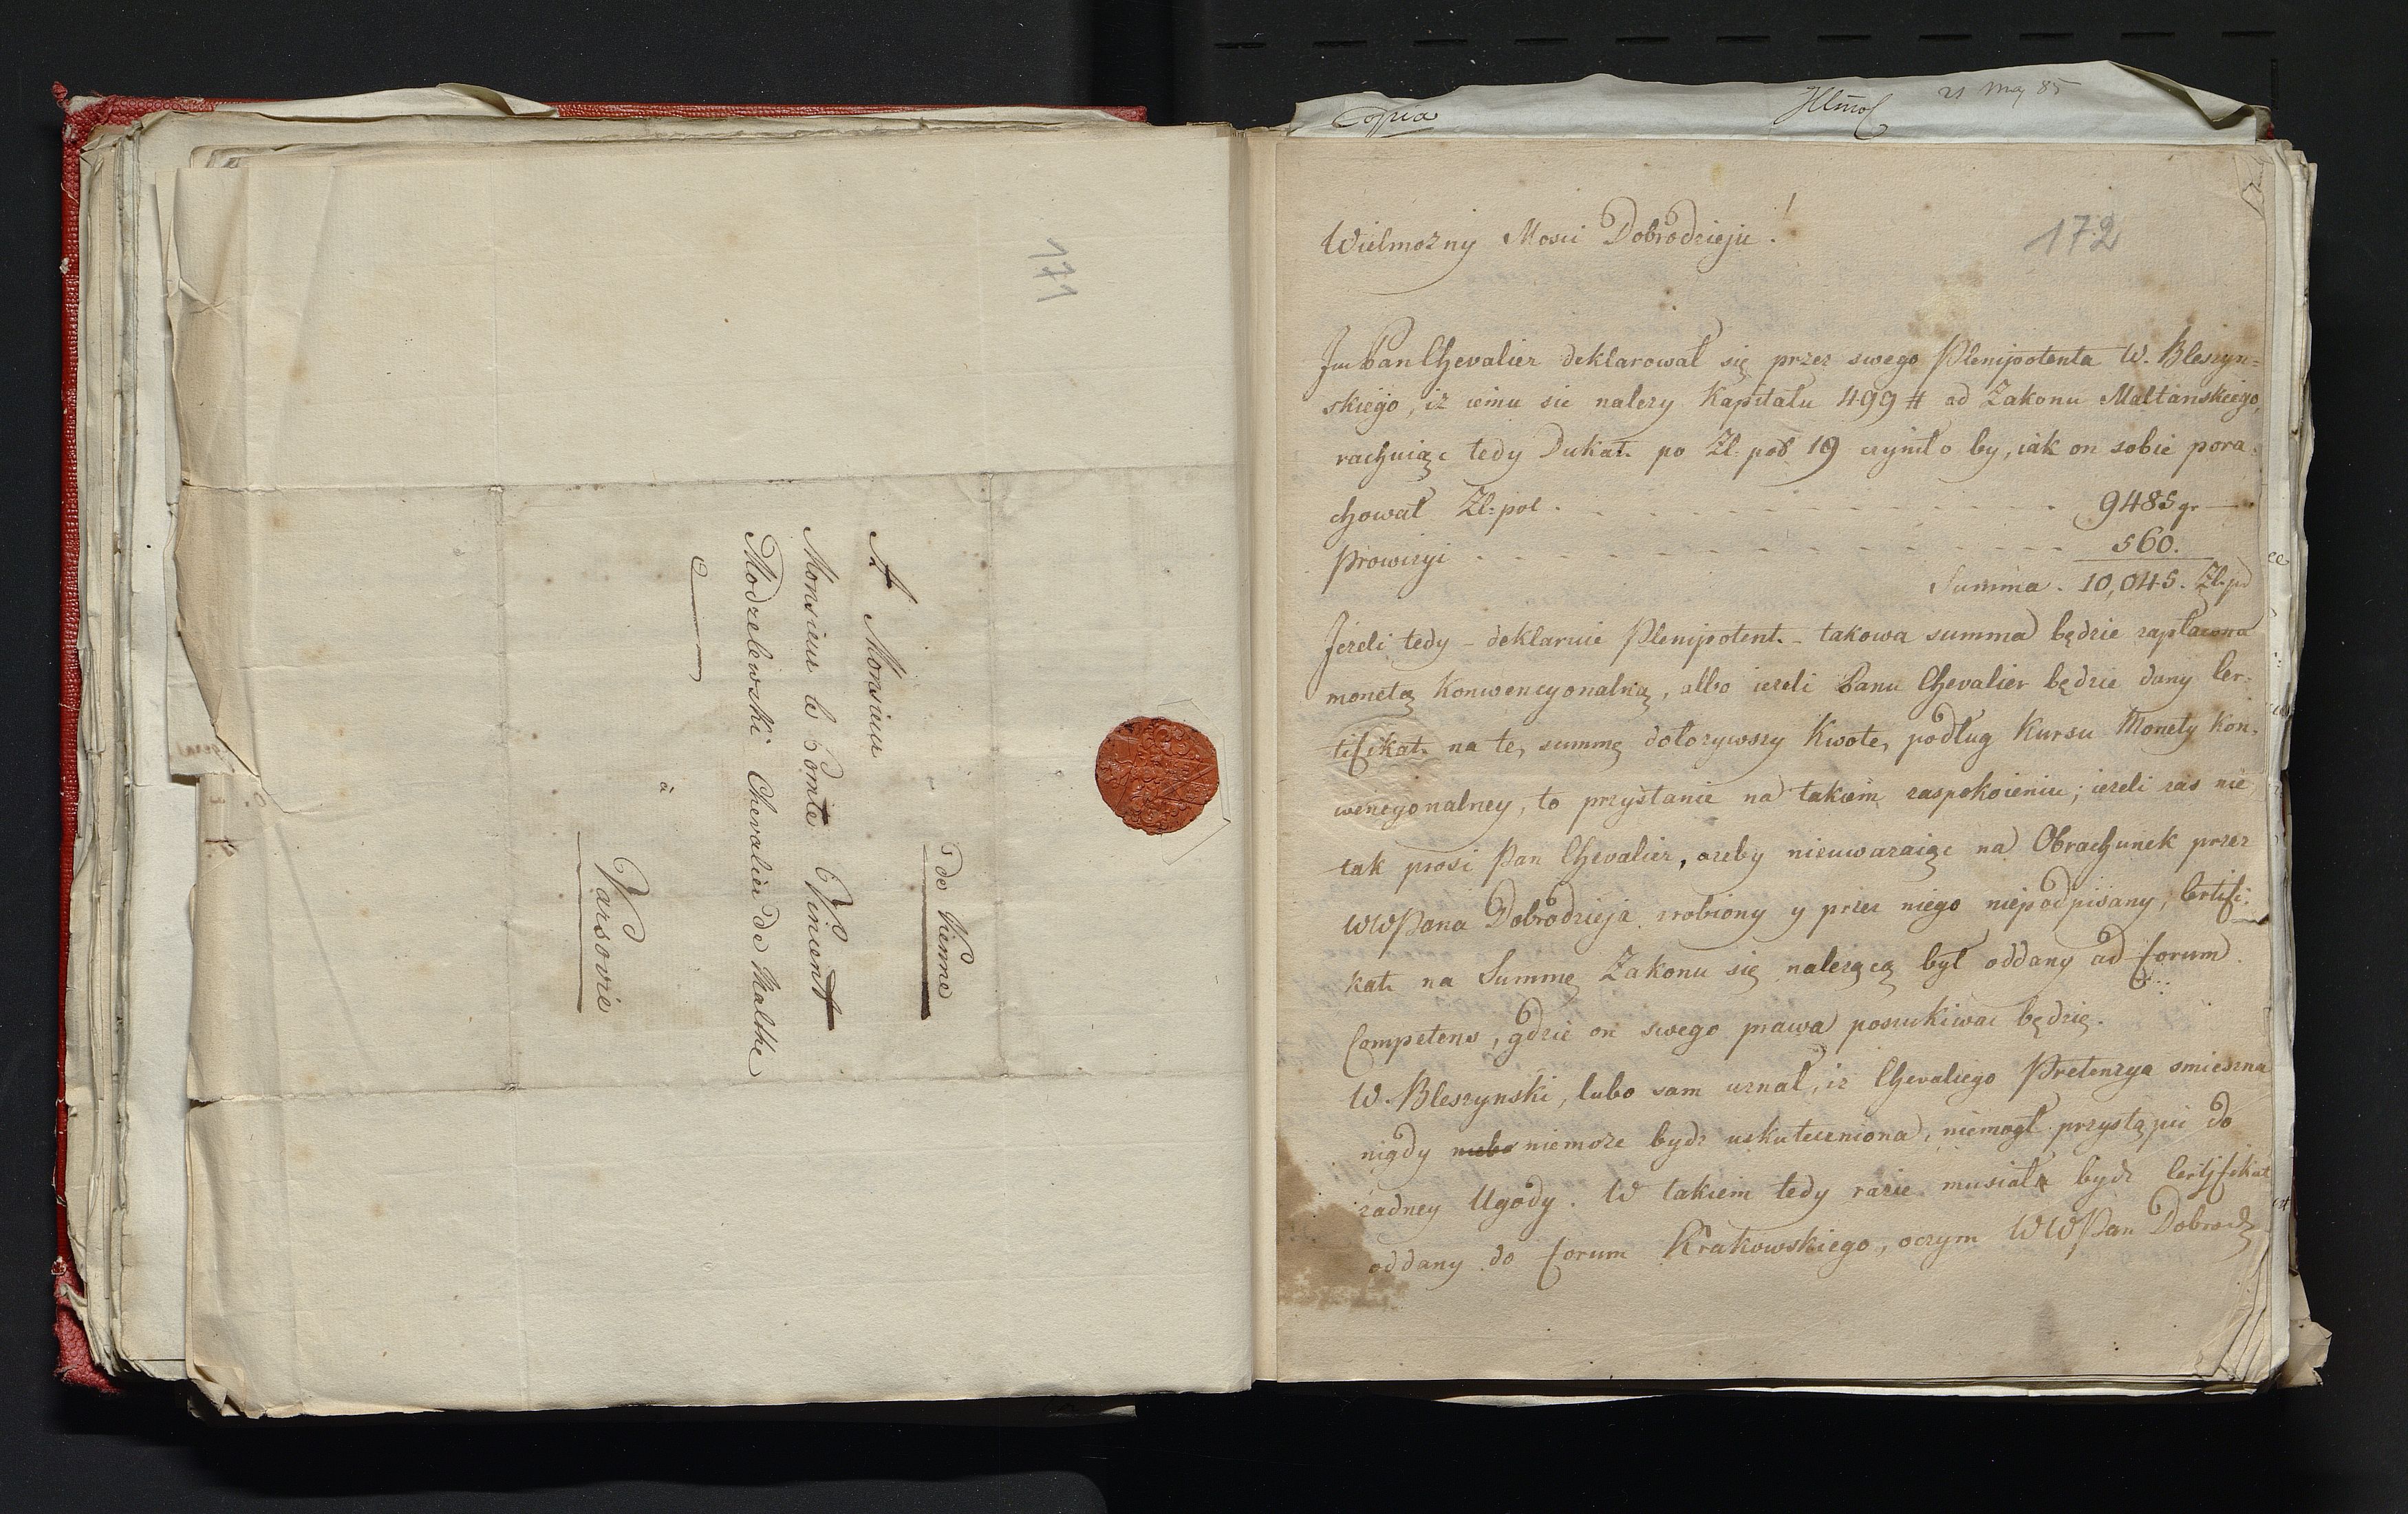 171
de Vienne
A Monsieur
Monsieur le Comte Vincent
Modzelewski Chevalier de Malthe
à
Varsovie
Copia
21 Maj 85
172
Wielmozny Mosci Dobrodzieju!
Jm Pan Chevalier deklarował się przez swego Plenipotenta W. Bleszyn=
skiego, iz iemu sie nalezy Kapitału 499 # od Zakonu Maltanskiego,
rachuiąc tedy Dukat. po Zl. pol 19 czyniło by, iak on sobie pora=
chował Zl: pol. 9485 gr —
Prowizyi 560.
Summa. 10,045. Zl. pol
Jezeli tedy - deklaruie Plenipotent. - takowa summa będzie zapłacona
monetą Konwencyonalną, albo iezeli Panu Chevalier będzie dany Cer=
tifikat. na te, summę dołozywszy Kwote, podług Kursu Monety Kon=
wencyonalney, to przystanie na takiem zaspokoieniu; iezeli zas nie
tak prosi Pan Chevalier, azeby nieuwazaiąc na Obrachunek przez
WWPana Dobrodzieja zrobiony y przez niego niepodpisany, Certifi=
kat. na Summę Zakonu się nalezącą był oddany ad forum
Competens, gdzie on swego prawa poszukiwac będzie.
W. Bleszynski, lubo sam uznał, iz Chevaliego Pretenzya smieszna
nigdy niemoze bydz uskuteczniona, niemogł przystąpic do
zadney Ugody. W takiem tedy razie musiał bydz Certifikat
oddany do forum Krakowskiego, oczym WWPan Dobrodz